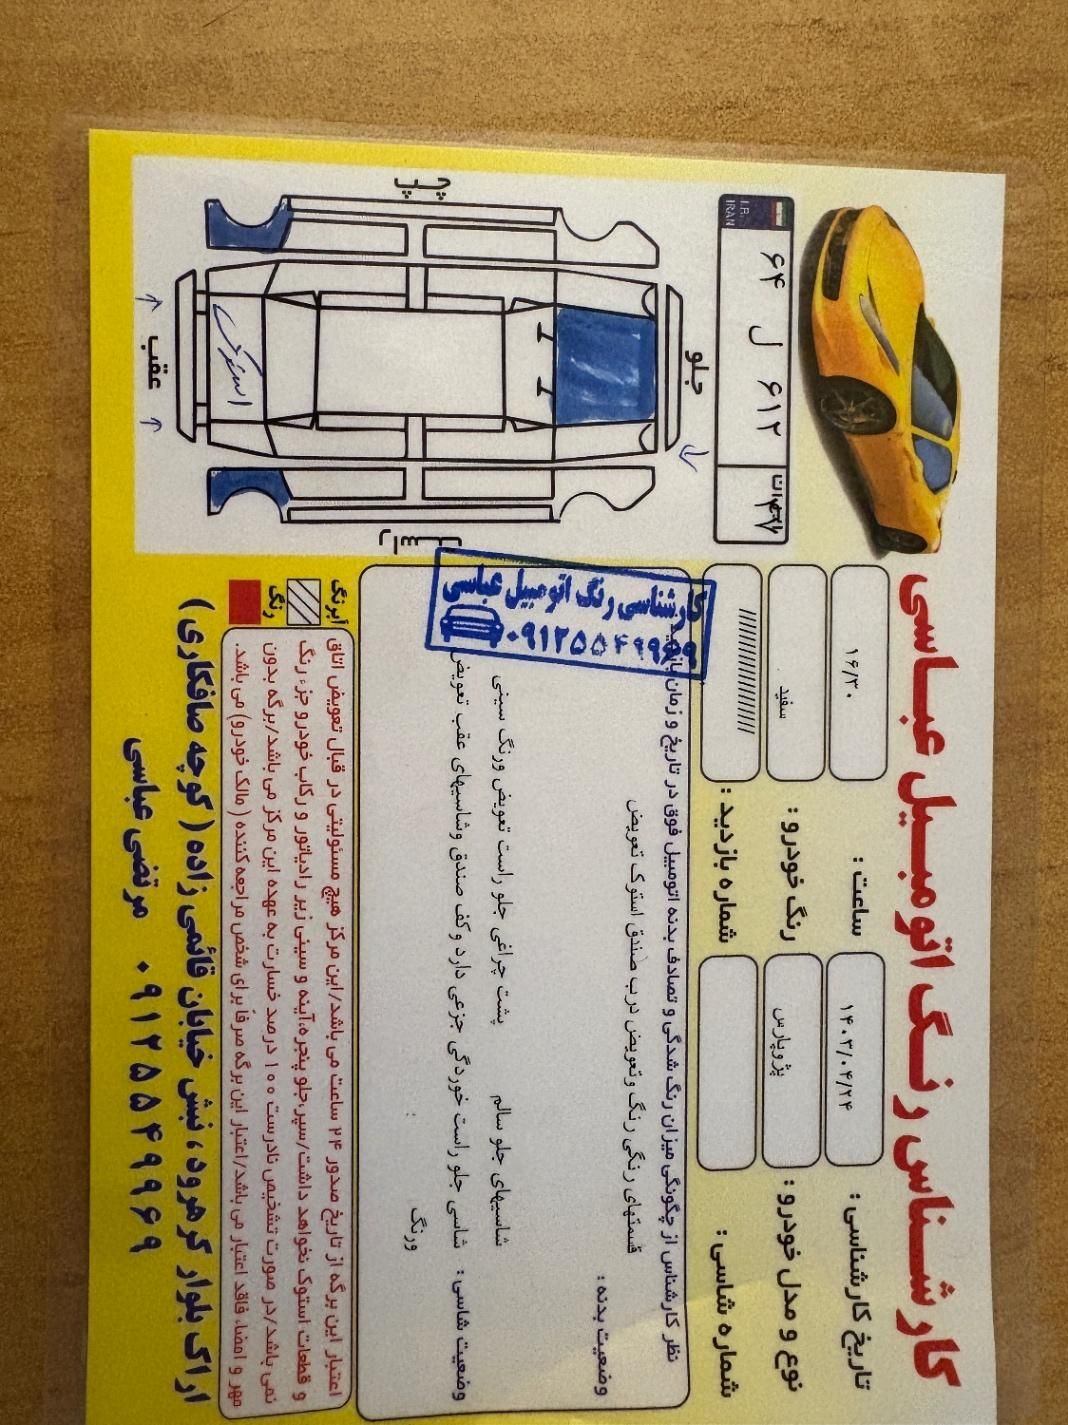 کارشناس رنگ اتومبیل عباسی
تاریخ کارشناسی : ۱۴۰۳/۰۴/۲۴ ساعت : ۱۶/۳۰
نوع و مدل خودرو : پژوپارس رنگ خودرو : سفید
شماره شاسی : شماره بازدید : ////////////////
I.R. IRAN
۶۴ ل ۶۱۲
۴۷
جلو
چپ
راست
عقب
استوک
کارشناسی رنگ اتومبیل عباسی
۰۹۱۲۵۵۴۹۹۶۹
نظر کارشناس از چگونگی میزان رنگ شدگی و تصادف بدنه اتومبیل فوق در تاریخ و زمان
وضعیت بدنه :
قسمتهای رنگی رنگ وتعویض درب صندق استوک تعویض
شاسیهای جلو سالم پشت چراغی جلو راست تعویض ورنگ سینی
وضعیت شاسی : شاسی جلو راست خوردگی جزعی دارد وکف صندق وشاسیهای عقب تعویض
ورنگ :
آبرنگ
رنگ
اعتبار این برگه از تاریخ صدور ۲۴ ساعت می باشد/این مرکز هیچ مسئولیتی در قبال تعویض اتاق
و قطعات استوک نخواهد داشت/سپر،جلو پنجره،آینه و سینی زیر رادیاتور و رکاب خودرو جزء رنگ
نمی باشد/در صورت تشخیص نادرست ۱۰۰ درصد خسارت به عهده این مرکز می باشد/برگه بدون
مهر و امضاء فاقد اعتبار می باشد/اعتبار این برگه صرفاً برای شخص مراجعه کننده (مالک خودرو) می باشد.
اراک بلوار کرهرود، نبش خیابان قائمی زاده ( کوچه صافکاری )
مرتضی عباسی ۰۹۱۲۵۵۴۹۹۶۹